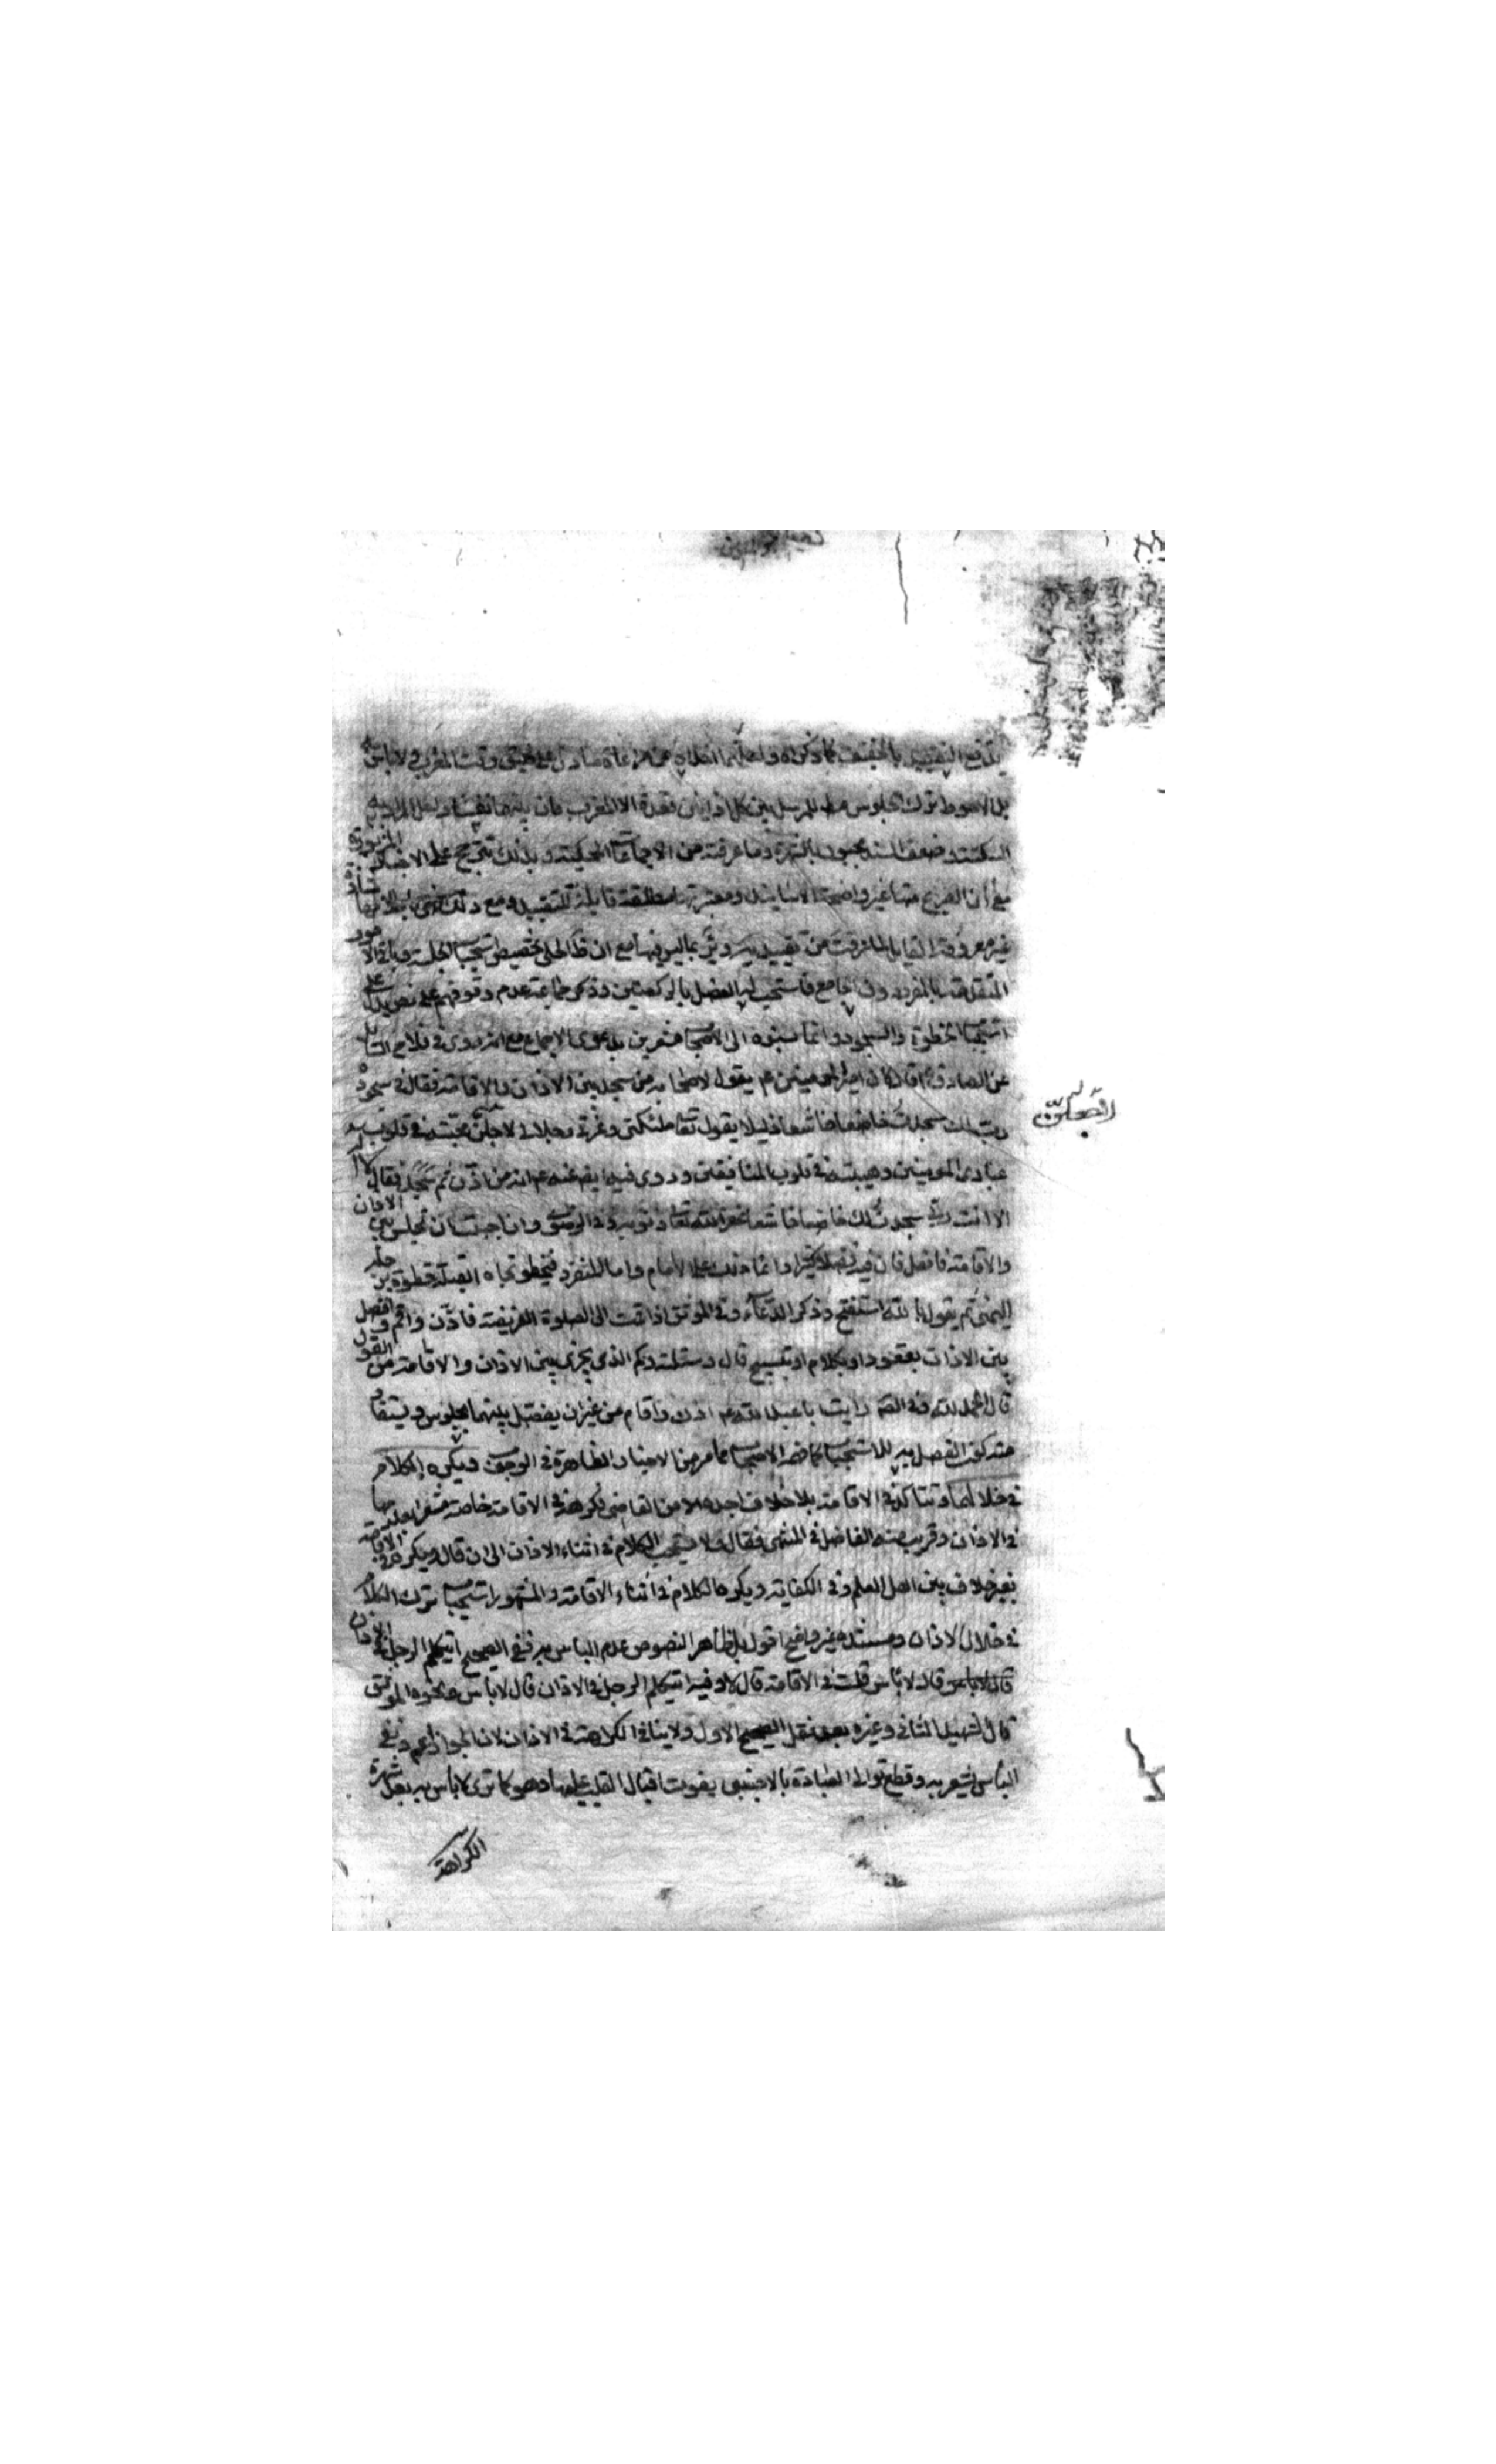 يندفع التقييد بالخفيف كما ذكراه ولعلهما عن مراعاة ما دل على ضيق وقت المغرب ولا باس به
بل الاحوط ترك الجلوس للمرسل بين كل اذانين قعدة الا المغرب فان بينهما نفسا ولعل المراد به
السكتة وضعف السند مجبور بالشهرة وما عرفته من الاجماعات المحكية وبذلك يترجح على الاخبار المزبورة
مع أن الصريح منها غير واضحة الاسانيد ومعتبرتها مطلقة قابلة للتقييد ومع ذلك شاذة
غير معروفة القايل الا من تقييد مع ان ظ الحلي تخصيص استحباب الجلسة وباقي الامور
المتقدمة بالمنفرد وفي الجامع فاستحب له الفضل بالركعتين وذكر جماعة عدم وقوفهم على نص يدل على
استحباب الخطوة والسجود وانما نسبوه الى الاصحاب مشعرين بدعوى الاجماع مع انه روى في فلاح السائل
عن الصادق ع قال كان امير المومنين ع يقول لاصحابه من سجد بين الاذان والاقامة فقال في سجوده
رب لك سجدت خاضعا خاشعا ذليلا يقول تعالى ملئكتي وعزتي وجلالي لاجعلن محبته في قلوب
عبادى المومنين وهيبته في قلوب المنافقين وروى فيه ايضا عنه ع انه من اذن ثم سجد فقال لا اله
الا انت ربي سجدت لك خاضعا خاشعا غفر الله تعالى ذنوبه وفي الرضوى وان احببت ان تجلس بين الاذان
والاقامة فافعل فان فيه فضلا كثيرا وانما ذلك على الامام واما المنفرد فيخطو تجاه القبلة خطوة برجله
اليمنى ثم يقول بالله استفتح وذكر الدعاء وفي الموثق اذا قمت الى الصلوة الفريضة فاذن واقم وافصل
بين الاذان بقعود او بكلام او تسبيح قال وسئلته وكم الذى يجزى بين الاذان والاقامة من القول
قال الحمد لله وفي الصحيح رايت ابا عبد الله ع اذن واقام من غير ان يفصل بينهما بجلوس ويستفاد
منه كون الفصل به للاستحباب كما فهمه الاصحاب مما مر من الاخبار الظاهرة في الوجوب ويكره الكلام
في خلالهما ويتاكد في الاقامة بلا خلاف اجده الا من القاضى فكرهه في الاقامة خاصة مشعرا بعدمها
في الاذان وقريب منه الفاضل في المنتهى فقال لا يستحب الكلام في اثناء الاذان الى ان قال ويكره في الاقامة
بغير خلاف بين اهل العلم وفي الكفاية ويكره الكلام في اثناء الاقامة والمشهور استحباب ترك الكلام
في خلال الاذان ومستنده غير واضح اقول بل ظاهر النصوص عدم الباس به ففي الصحيح ايتكلم الرجل في الاذان
قال لا باس قلت في الاقامة قال لا وفيه ايتكلم الرجل في الاذان قال لا باس ونحوه الموثق
قال الشهيد الثاني وغيره بعد نقل الصحيح الاول ولا ينافي الكراهة في الاذان لان الجواز اعم ونفي
الباس يشعر به وقطع توالي العبادة بالاجنبي يفوت اقبال القلب عليها وهو كما ترى لا باس به بعد شهرة
الكراهة